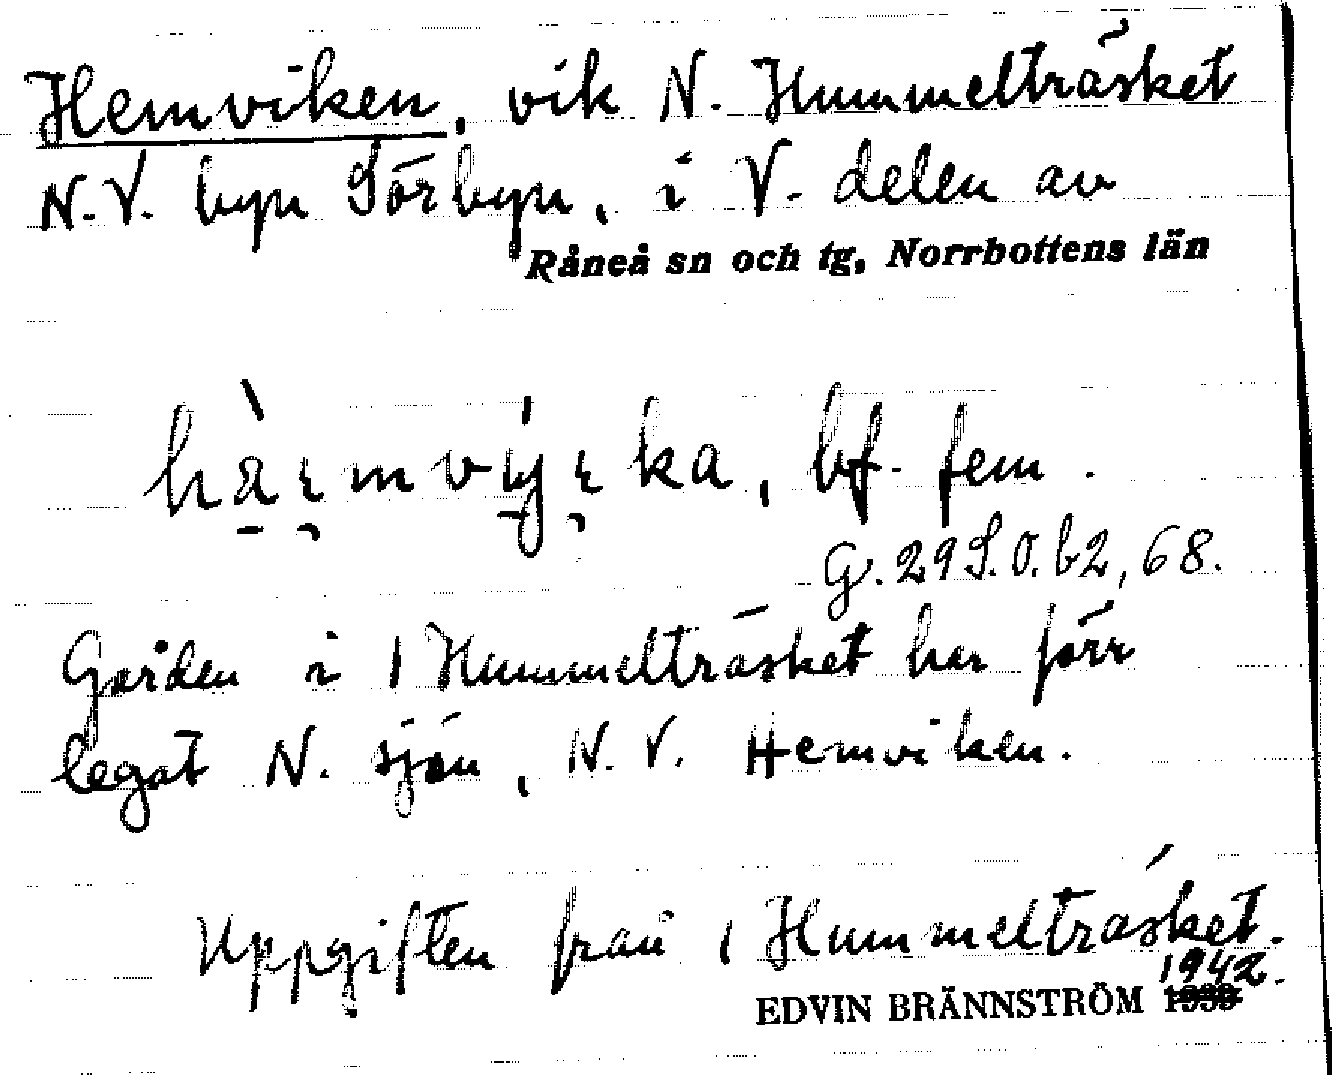 Hemviken, vik N. Hummelträsket
N.V. byn Sörbyn, i V. delen av
Råneå sn och tg, Norrbottens län
bf. fem.
G. 29 S.O. b2, 68.
Gården i 1 Hummelträsket har förr
legat N. sjön, N.V. Hemviken.
Uppgiften från 1 Hummelträsket.
1942.
EDVIN BRÄNNSTRÖM 1939